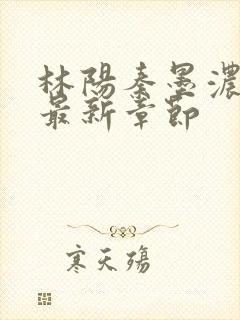 林陽秦墨濃
最新章節
寒天殤